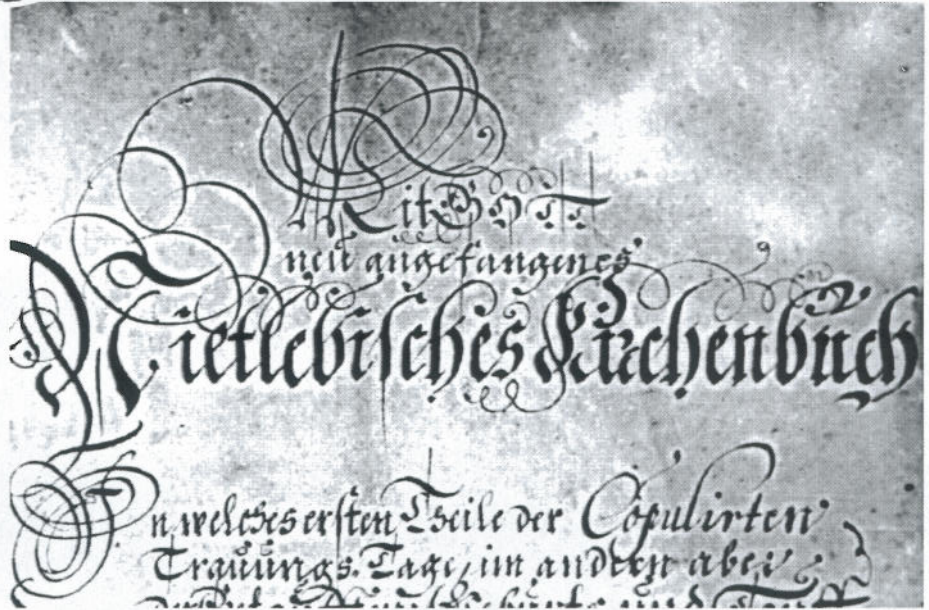 Mit GOTT
neu angefangenes
Nietlebisches Kirchenbuch
In welches ersten Theile der Copulirten
Trauungs Tage, im andern aber